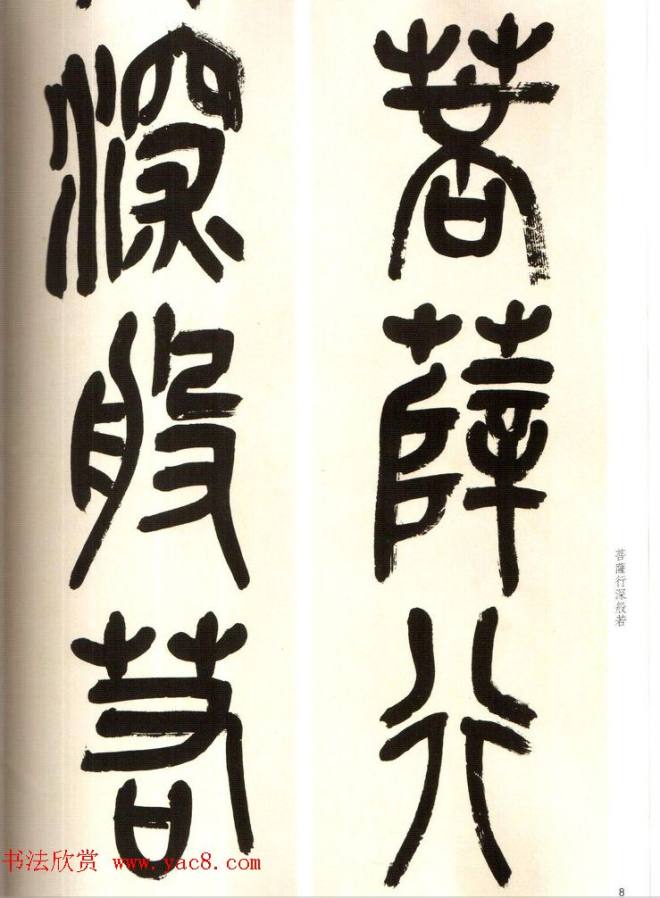 菩薩行
深般若
菩薩行深般若
8
书法欣赏 www.yac8.com